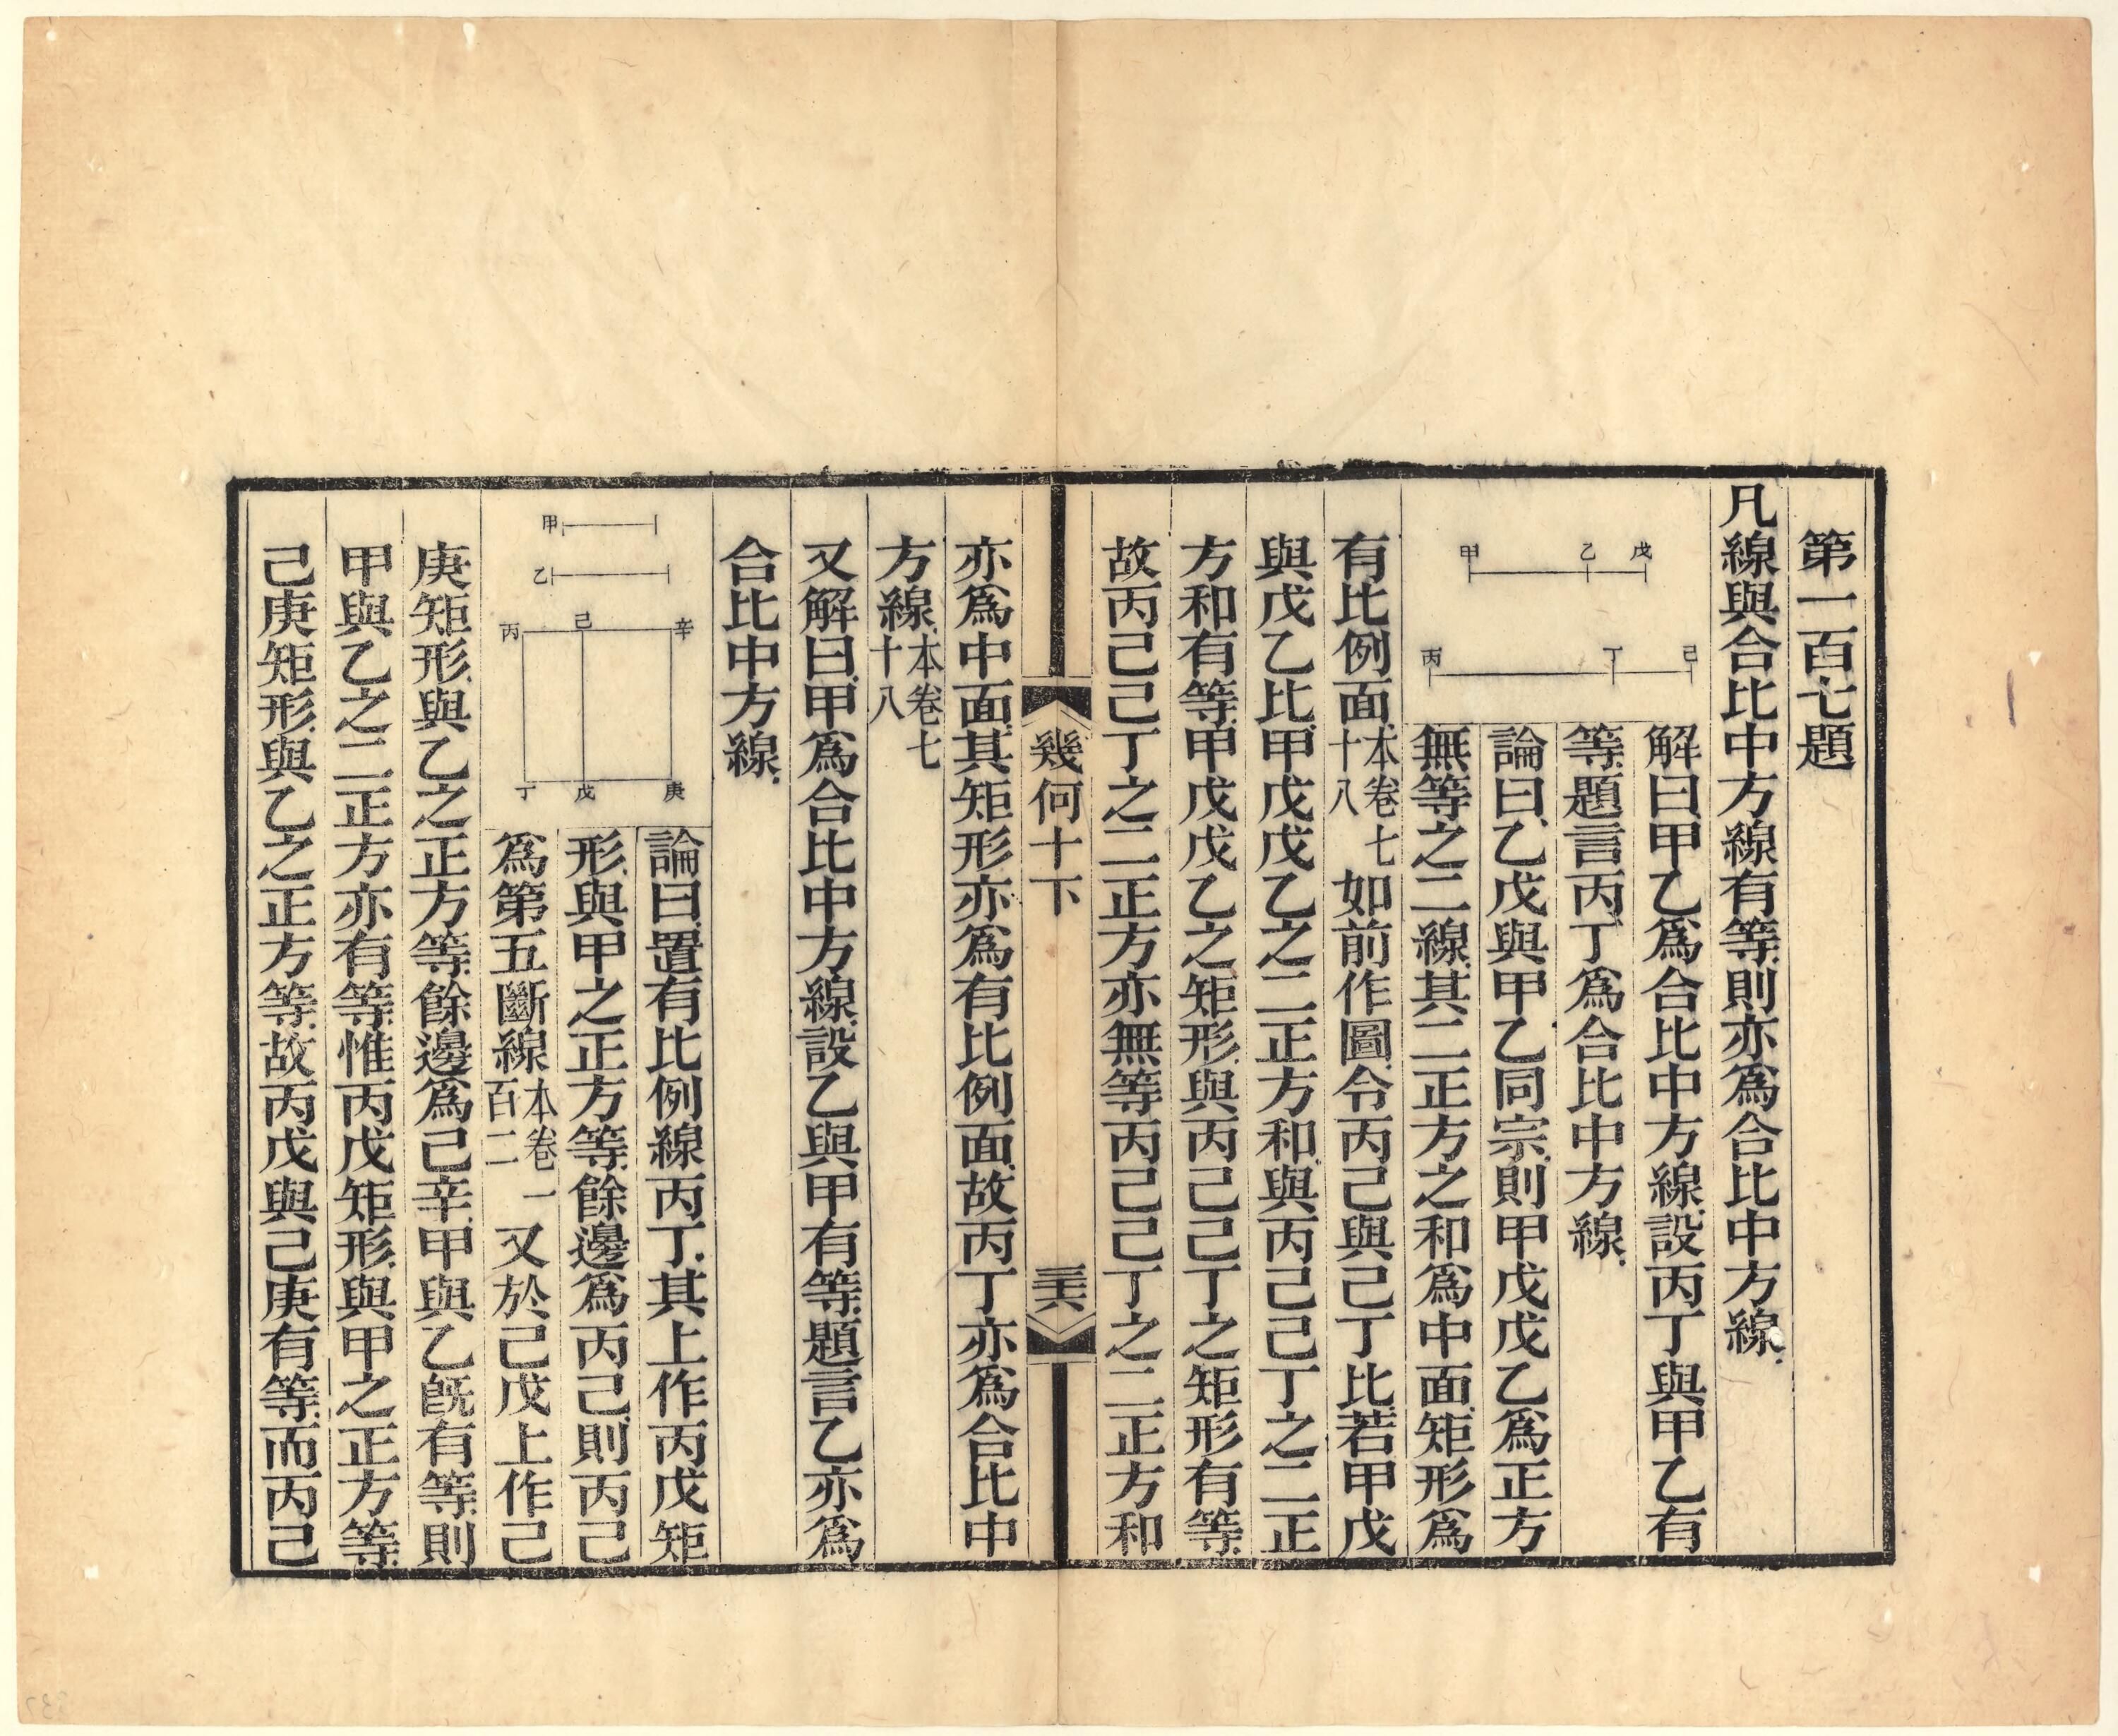 第一百七題
凡線與合比中方線有等則亦爲合比中方線
甲 乙 戊
丙 丁 己
解曰甲乙爲合比中方線設丙丁與甲乙有
等題言丙丁爲合比中方線
論曰乙戊與甲乙同宗則甲戊戊乙爲正方
無等之二線其二正方之和爲中面矩形爲
有比例面本卷七十八如前作圖令丙己與己丁比若甲戊
與戊乙比甲戊戊乙之二正方和與丙己己丁之二正
方和有等甲戊戊乙之矩形與丙己己丁之矩形有等
故丙己己丁之二正方亦無等丙己己丁之二正方和
幾何十下
亦爲中面其矩形亦爲有比例面故丙丁亦爲合比中
方線本卷七十八
又解曰甲爲合比中方線設乙與甲有等題言乙亦爲
合比中方線
甲
乙
丙 己 辛
丁 戊 庚
論曰置有比例線丙丁其上作丙戊矩
形與甲之正方等餘邊爲丙己則丙己
爲第五斷線本卷一百二又於己戊上作己
庚矩形與乙之正方等餘邊爲己辛甲與乙旣有等則
甲與乙之二正方亦有等惟丙戊矩形與甲之正方等
己庚矩形與乙之正方等故丙戊與己庚有等而丙己